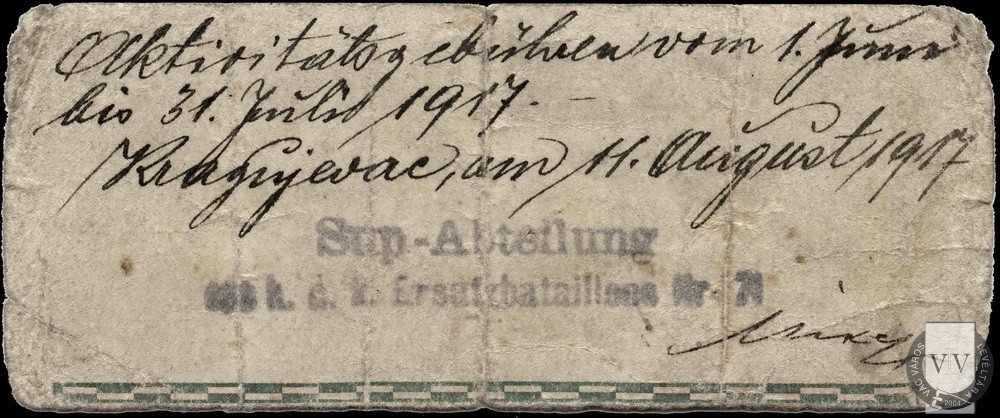 Aktivitätsgebühren vom 1. Juni
bis 31. Juli 1917. —
Kragujevac, am 11. August 1917
Sup.-Abteilung
des k. u. k. Ersatzbataillons Nr. 71
VÁC VÁROS LEVÉLTÁRA
VV
2004